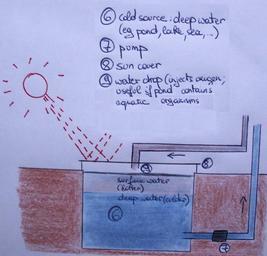 ⑥ cold source: deep water
(eg pond, lake, sea, ...)
⑦ pump
⑧ sun cover
⑨ water drop (injects oxygen;
useful if pond contains
aquatic organisms
⑨
⑧
surface water
(hotter)
deep water (colder)
⑥
⑦